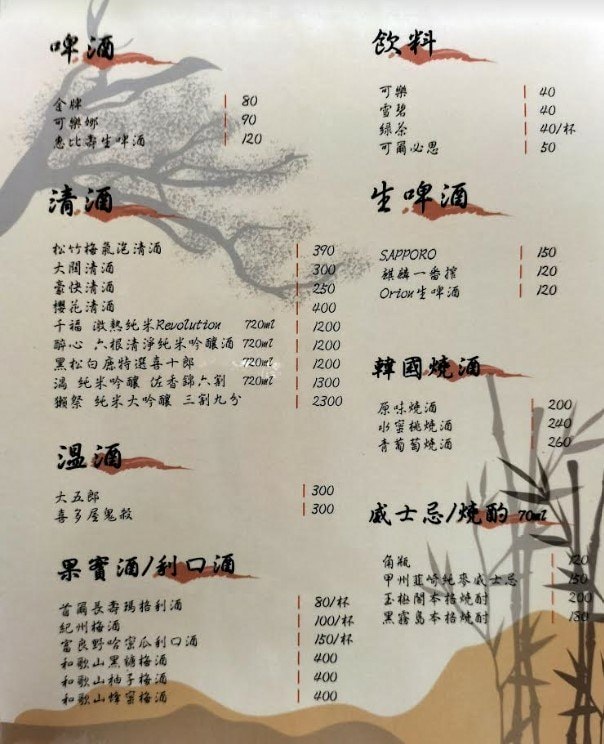 啤酒
金牌 | 80
可樂娜 | 90
惠比壽生啤酒 | 120
清酒
松竹梅氣泡清酒 | 390
大關清酒 | 300
豪快清酒 | 250
櫻花清酒 | 400
千福 激熱純米Revolution 720ml | 1200
醉心 六根清淨純米吟釀酒 720ml | 1200
黑松白鹿特選喜十郎 720ml | 1200
鴻 純米吟釀 佐香錦六割 720ml | 1300
獺祭 純米大吟釀 三割九分 | 2300
溫酒
大五郎 | 300
喜多屋鬼殺 | 300
果實酒/利口酒
首爾長壽瑪格利酒 | 80/杯
紀州梅酒 | 100/杯
富良野哈密瓜利口酒 | 150/杯
和歌山黑糖梅酒 | 400
和歌山柚子梅酒 | 400
和歌山蜂蜜梅酒 | 400
飲料
可樂 | 40
雪碧 | 40
綠茶 | 40/杯
可爾必思 | 50
生啤酒
SAPPORO | 150
麒麟一番搾 | 120
Orion生啤酒 | 120
韓國燒酒
原味燒酒 | 200
水蜜桃燒酒 | 240
青葡萄燒酒 | 260
威士忌/燒酌 70ml
角瓶 | 120
甲州韮崎純麥威士忌 | 150
玉極閣本格燒酎 | 200
黑霧島本格燒酎 | 180